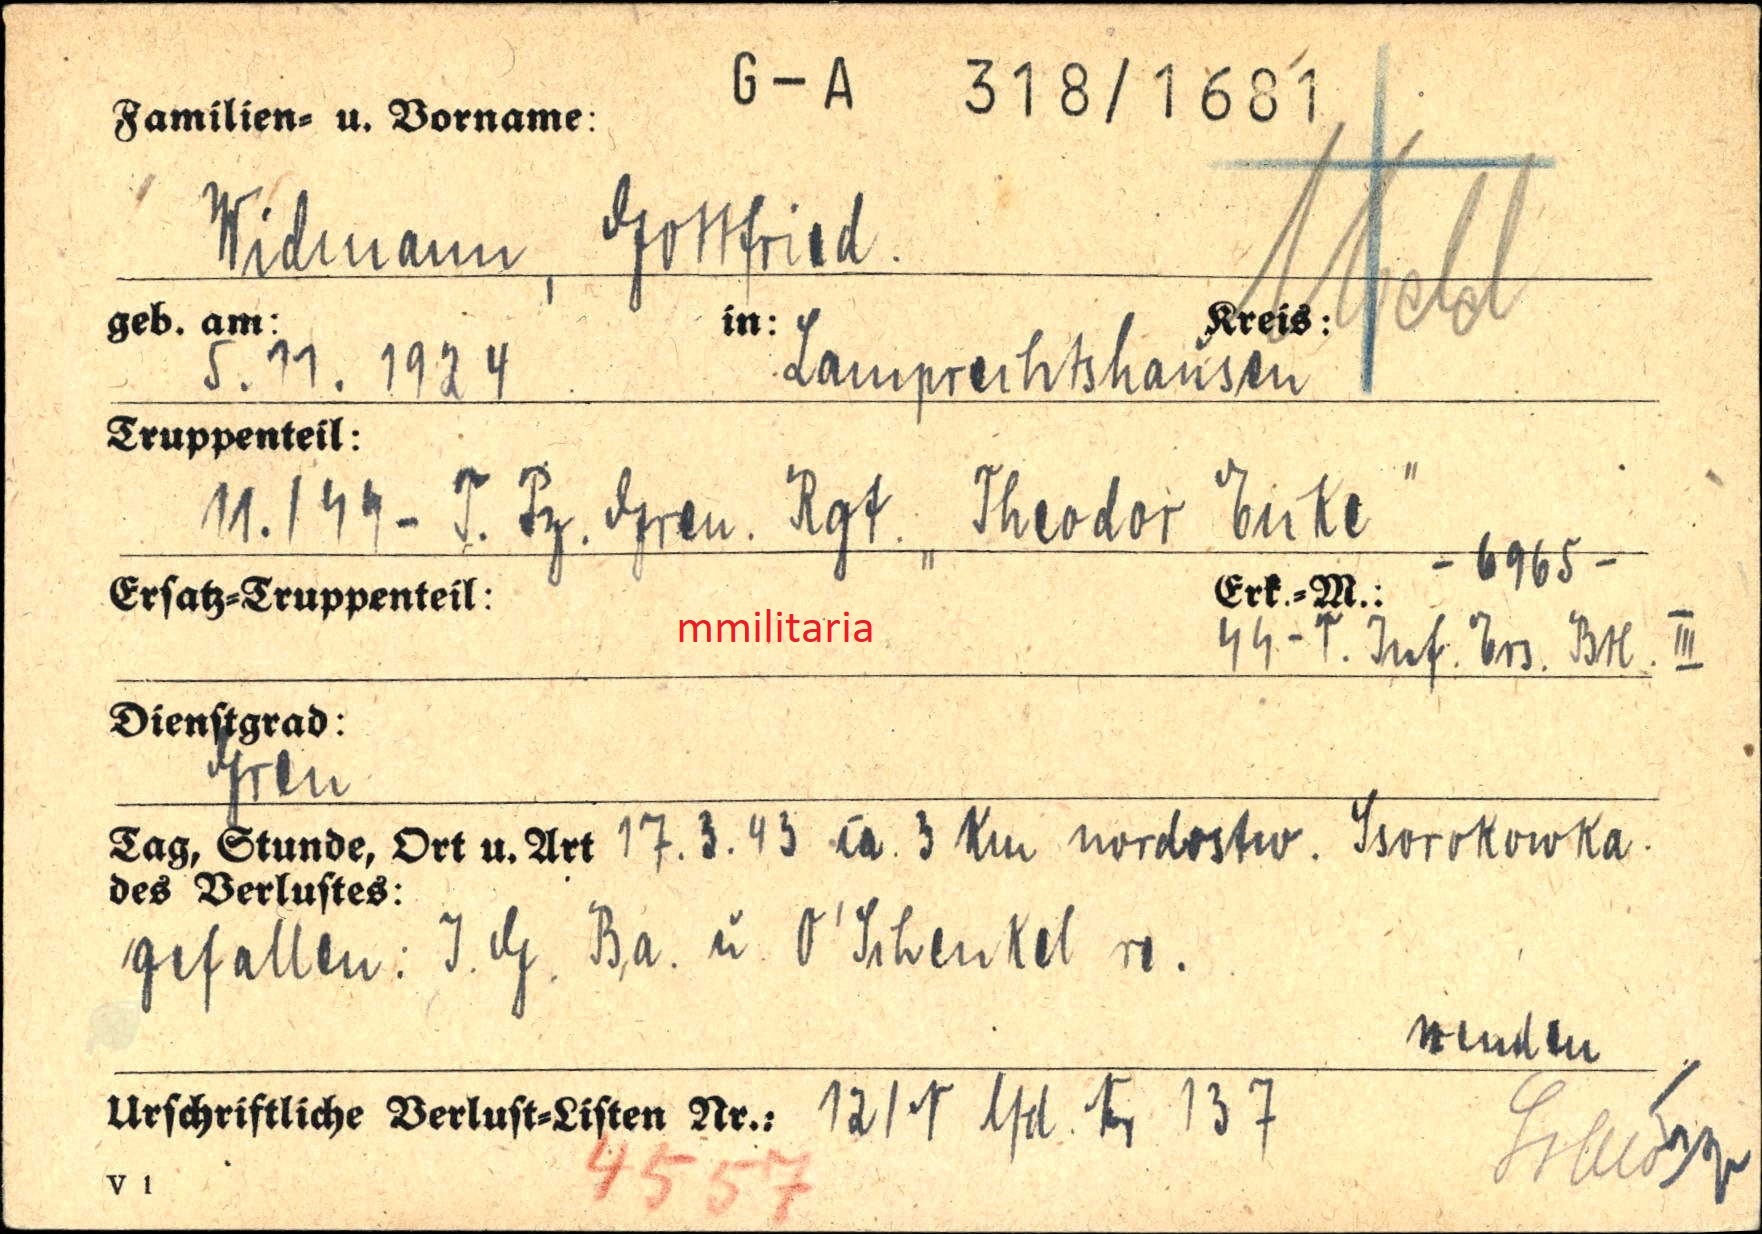 G-A 318/1681
Familien- u. Vorname:
Widmann, Gottfried.
geb. am: in: Kreis:
5.11.1924 Lamprechtshausen
Truppenteil:
11./SS- T. Pz. Gren. Rgt. „Theodor Eicke"
Ersatz-Truppenteil: Erk.-M.: -6965-
mmilitaria
SS-T. Inf. Ers. Btl. III
Dienstgrad:
Gren
Tag, Stunde, Ort u. Art 17.3.43 ca. 3 Km nordostw. Ssorokowka.
des Verlustes:
gefallen: I.G. Ba. u O'Schenkel re.
wenden
Urschriftliche Verlust-Listen Nr.: 12/ lfd. Nr 137
4557
V 1